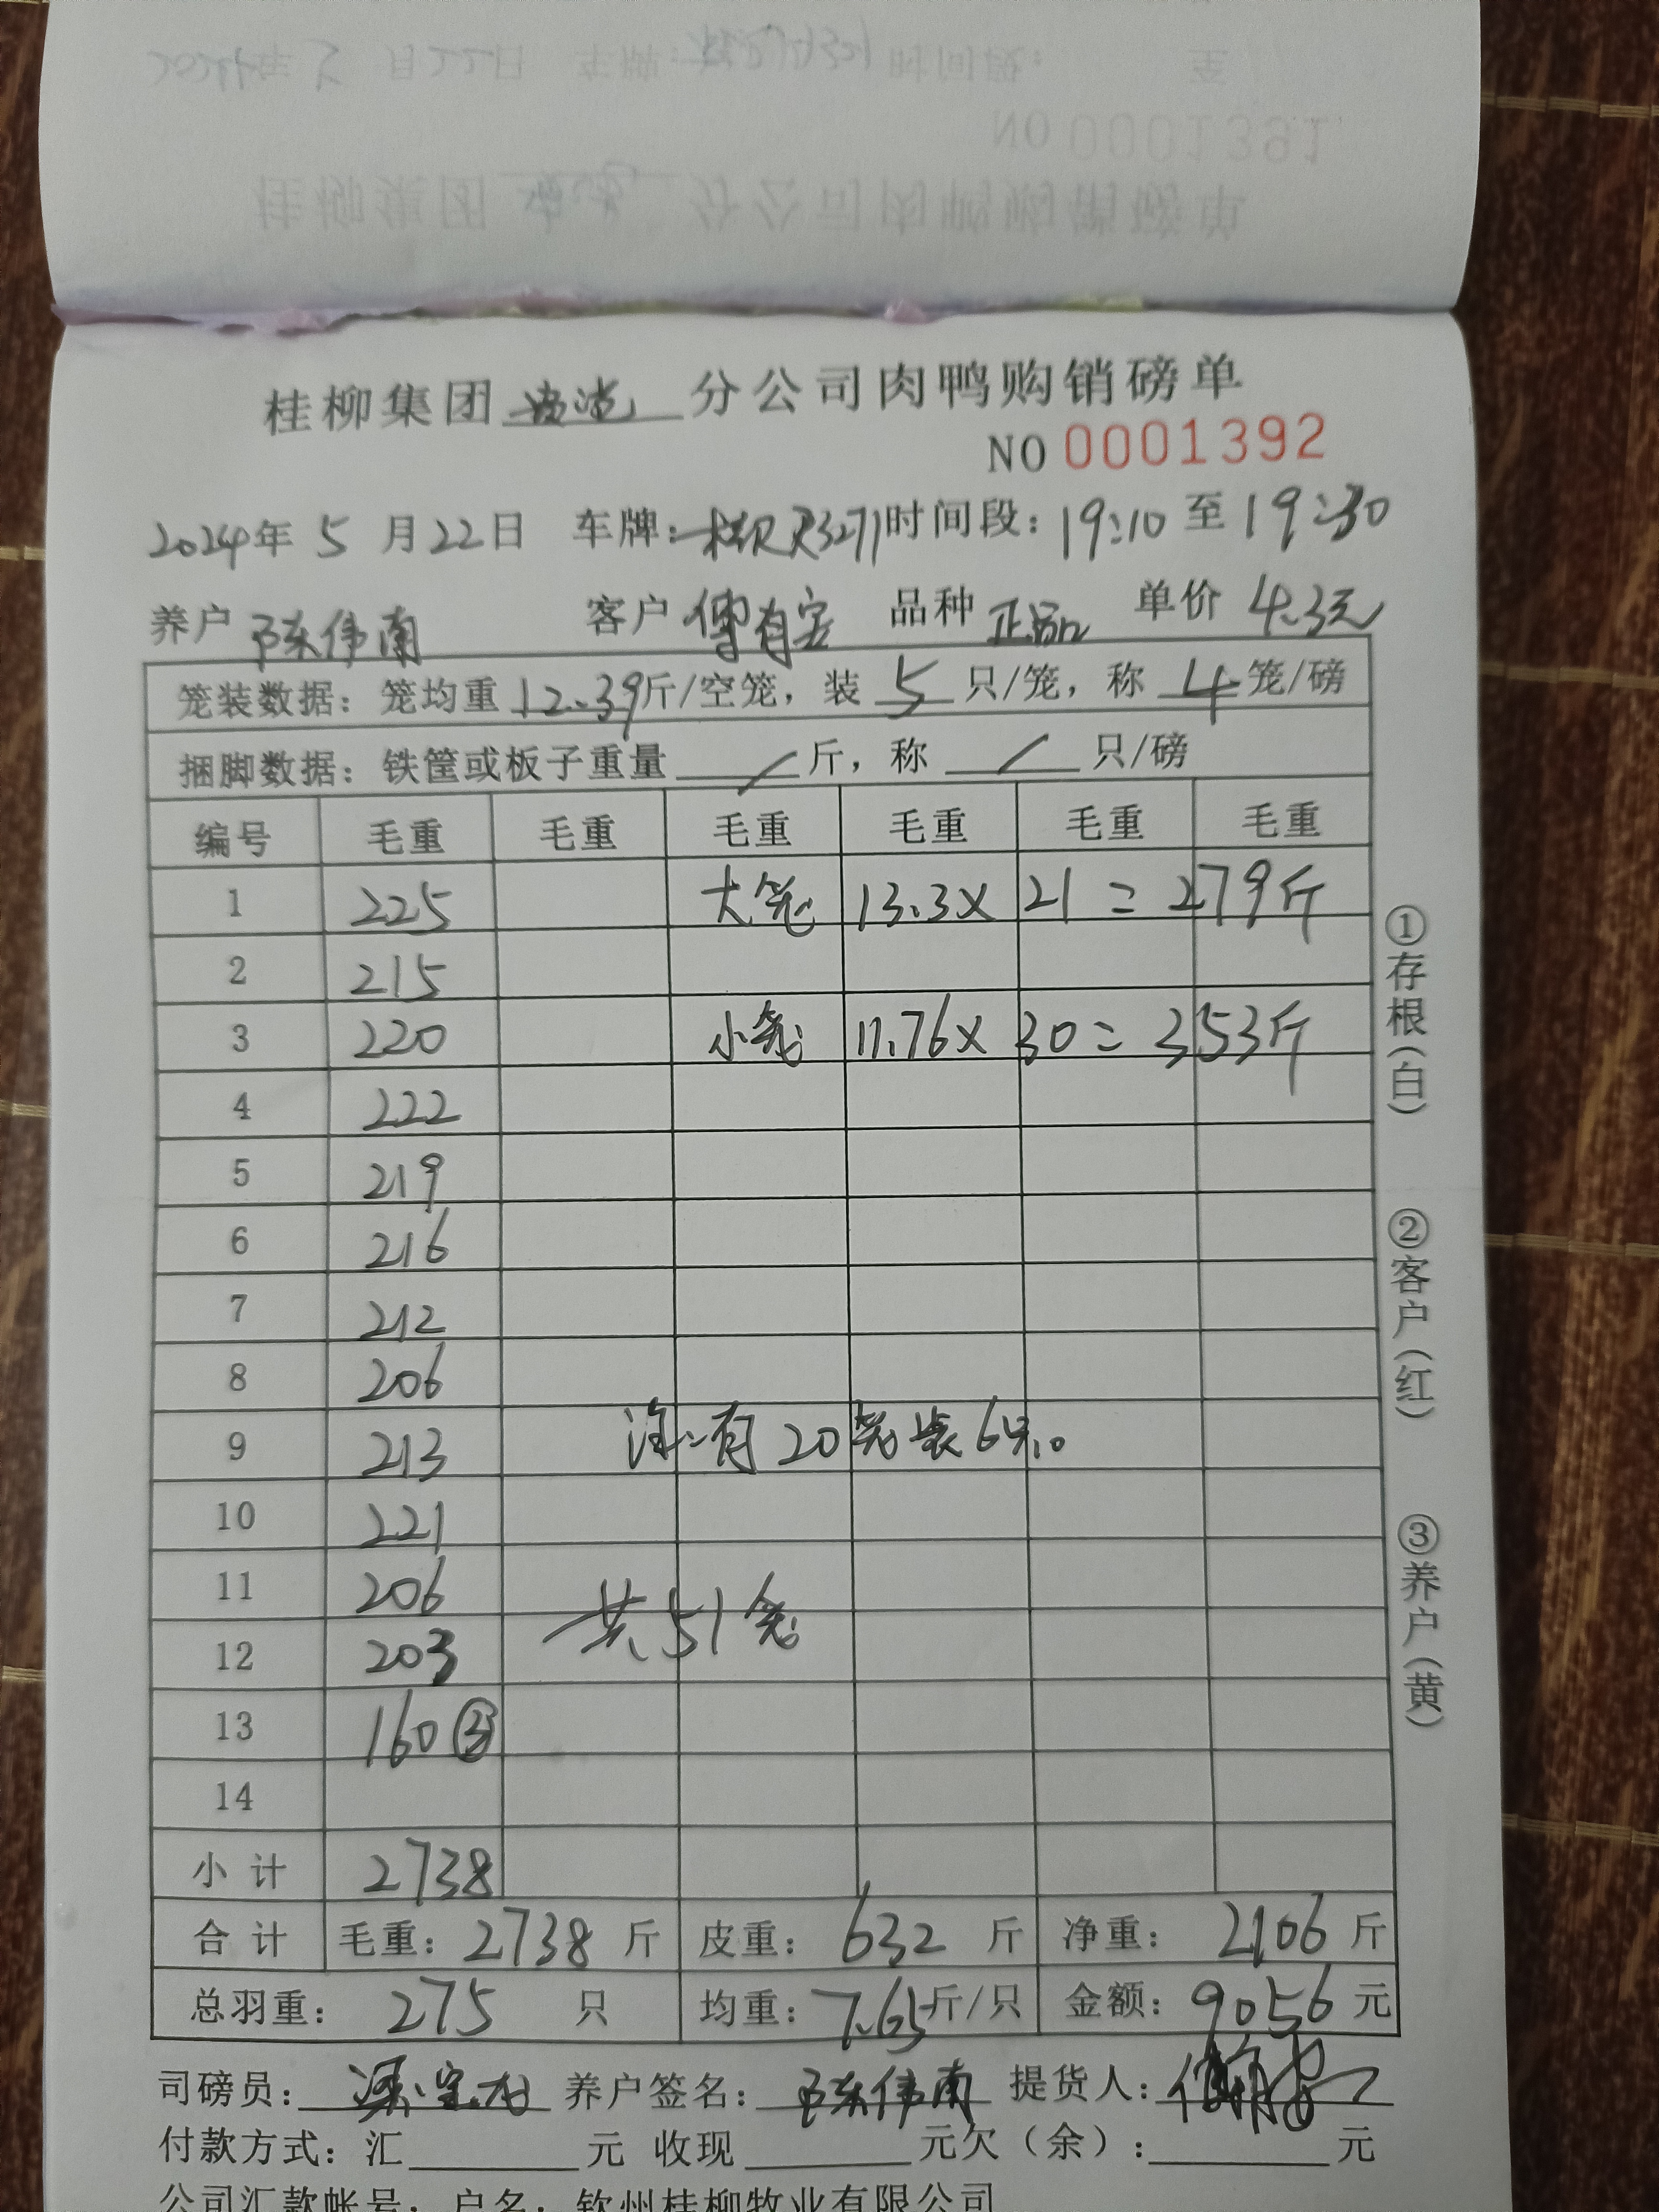 NO 0001391
桂柳集团 分公司肉鸭购销磅单
NO 0001392
2024年 5 月 22 日 车牌: 时间段: 19:10 至 19:30
养户 陈伟南 客户 傅有 品种 正品 单价 4.3元
笼装数据: 笼均重 12.39 斤/空笼, 装 5 只/笼, 称 4 笼/磅
捆脚数据: 铁筐或板子重量 / 斤, 称 / 只/磅
编号 毛重 毛重 毛重 毛重 毛重 毛重
1 225 大笼 13.3× 21 = 279斤
2 215
3 220 小笼 11.76× 30 = 353斤
4 222
5 219
6 216
7 212
8 206
9 213 注:有20笼装6只。
10 221
11 206 共51笼
12 203
13 160 ③
14
小计 2738
合计 毛重: 2738 斤 皮重: 632 斤 净重: 2106 斤
总羽重: 275 只 均重: 7.65 斤/只 金额: 9056 元
司磅员: 养户签名: 陈伟南 提货人:
付款方式: 汇 元 收现 元欠(余): 元
公司汇款帐号: 户名: 钦州桂柳牧业有限公司
①存根(白)
②客户(红)
③养户(黄)